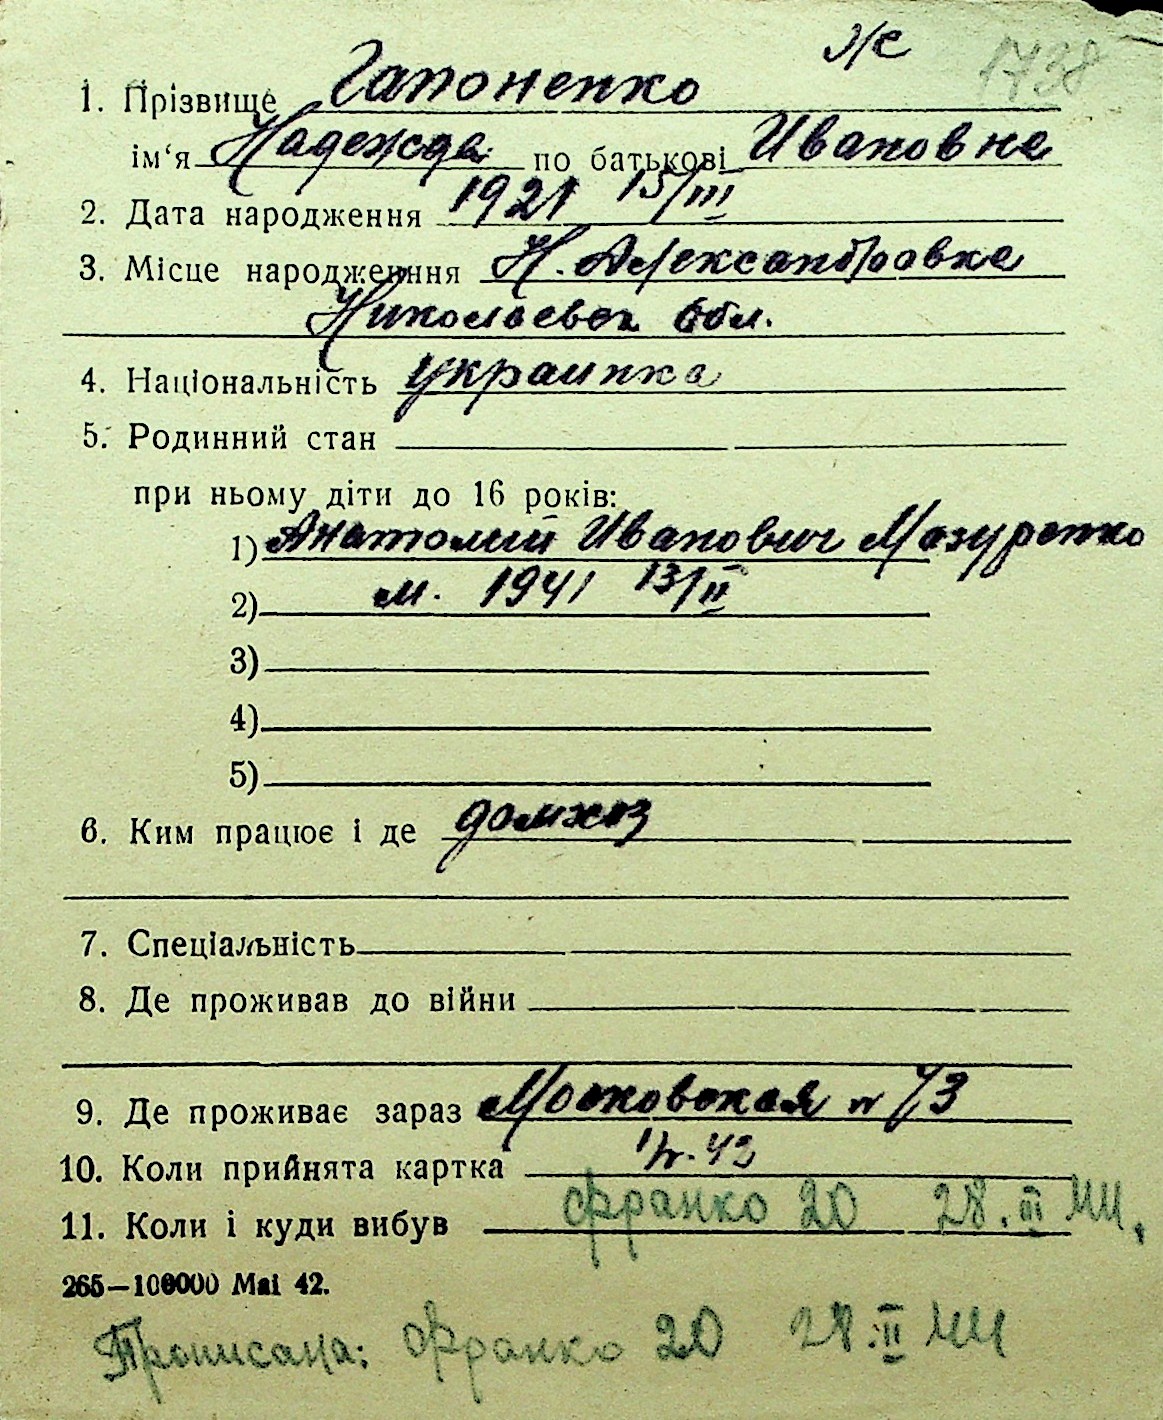 Ж 1738
1. Прізвище Гапоненко
ім'я Надежда по батькові Ивановна
2. Дата народження 1921 15/III
3. Місце народження Н. Александровка
Николаевск обл.
4. Національність украинка
5. Родинний стан
при ньому діти до 16 років:
1) Анатолий Иванович Мазуренко
2) м. 1941 13/II
3)
4)
5)
6. Ким працює і де домхоз
7. Спеціальність
8. Де проживав до війни
9. Де проживає зараз Московская № 73
10. Коли прийнята картка 42
11. Коли і куди вибув Франко 20 28. III 44.
265—100000 Mai 42.
Прописана: Франко 20 28. II 44